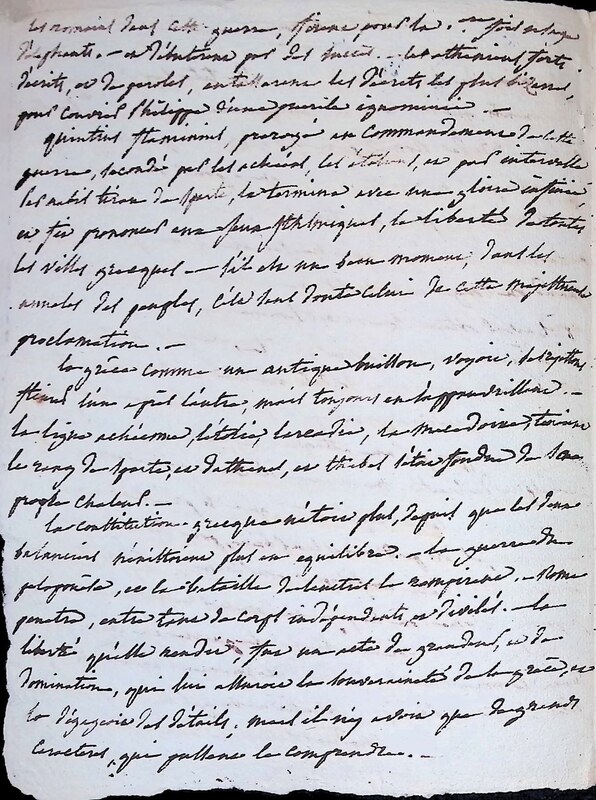 les romains dans cette guerre, firent pour la 1ere fois usage
d'elephants. — et n'eurent pas des succès. — les atheniens forts
d'écrits, et de paroles, entasserent les décrets les plus bizarres,
pour couvrir Philippe d'une puerile ignominie. —
quintius flaminius, prorogé au commandement de cette
guerre, secondé par les achéens, les étoliens, et par intervalle
les nabis tiran de sparte, la termina avec une gloire infinie,
et fit prononcer aux jeux isthmiques, la liberté de toutes
les villes grecques — s'il est un beau moment, dans les
annales des peuples, c'est sans doute celui de cette majestueuse
proclamation. —
la grèce comme un antique buisson, voyoit, ses rejettons
fleurir l'un après l'autre, mais toujours en s'appauvrissant. —
la ligue achéenne, l'étolie, l'arcadie, la macedoine, tenoient
le rang de sparte, et d'athenes, et thebes s'étoit fondue de sa
propre chaleur. —
la constitution grecque n'étoit plus, depuis que les deux
balanciers n'étoient plus en equilibre. — la guerre du
peloponèse, et la bataille de leuctres le rompirent. — Rome
penetra, entre tant de corps indépendents, et divisés. — la
liberté qu'elle rendit, fut un acte de grandeur, et de
domination, qui lui assuroit la souveraineté de la grèce, et
la dégageoit des détails; mais il n'y avoit que de grands
caracteres, que pussent le comprendre. —